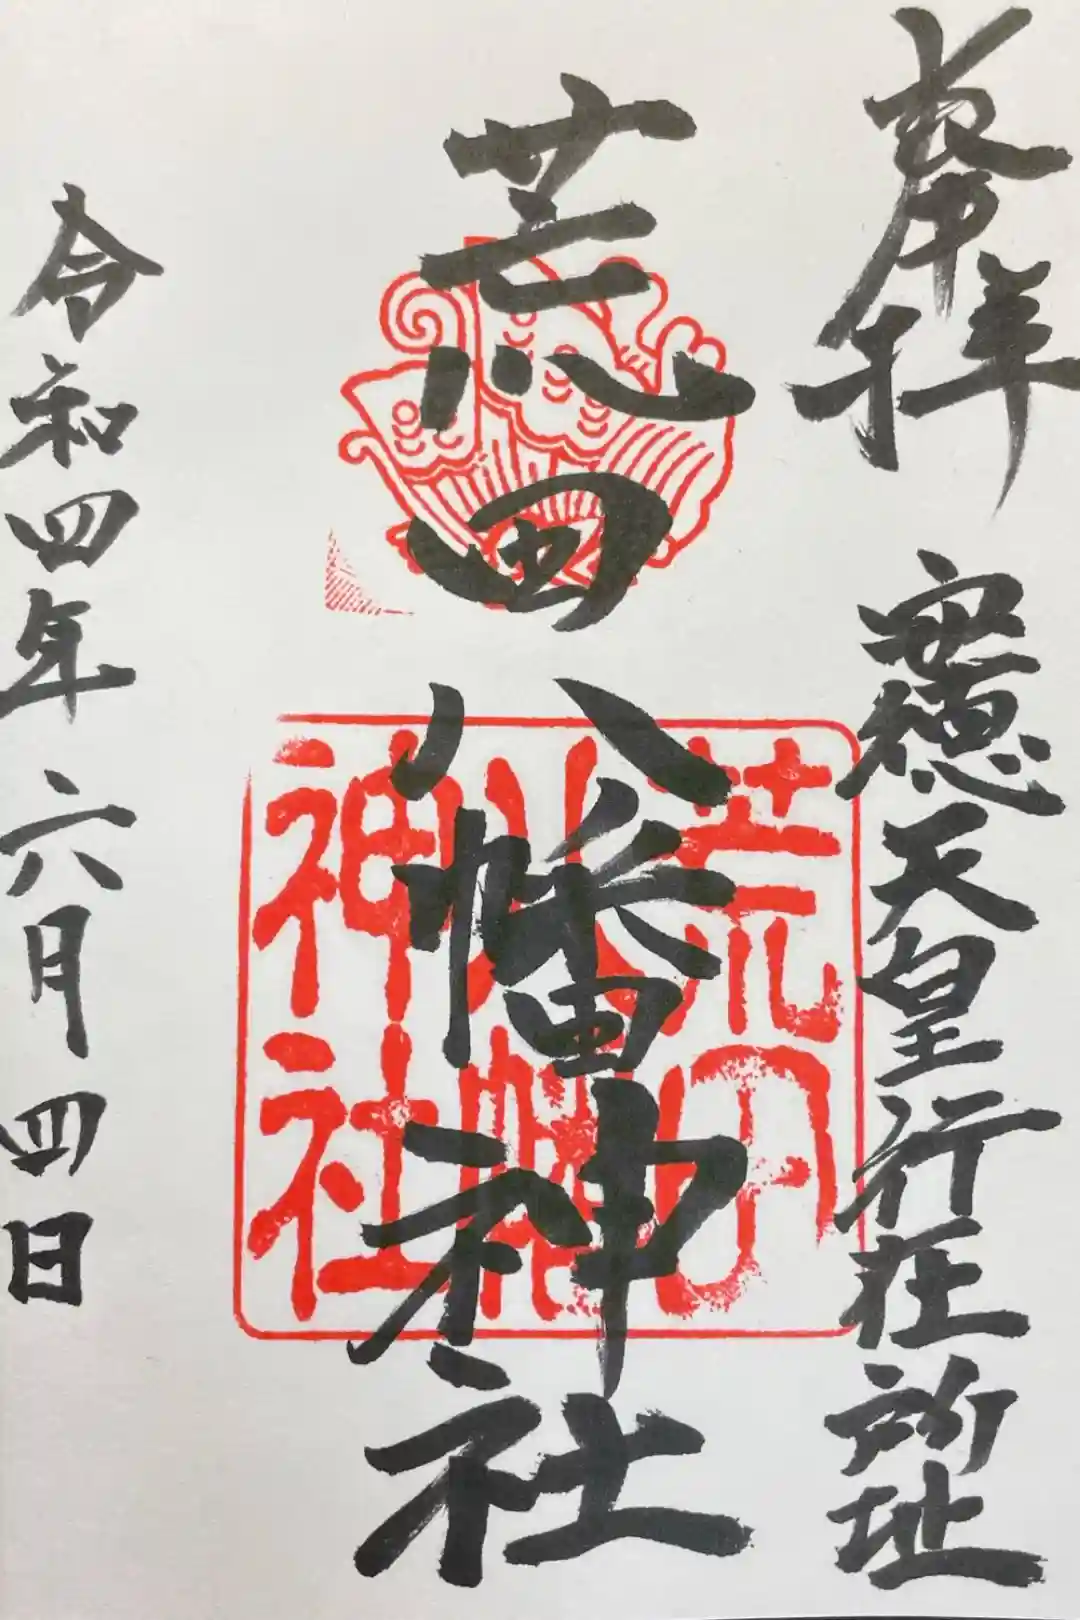 奉拝
安徳天皇行在所址
荒田八幡神社
荒田
八幡
神社
令和四年六月四日